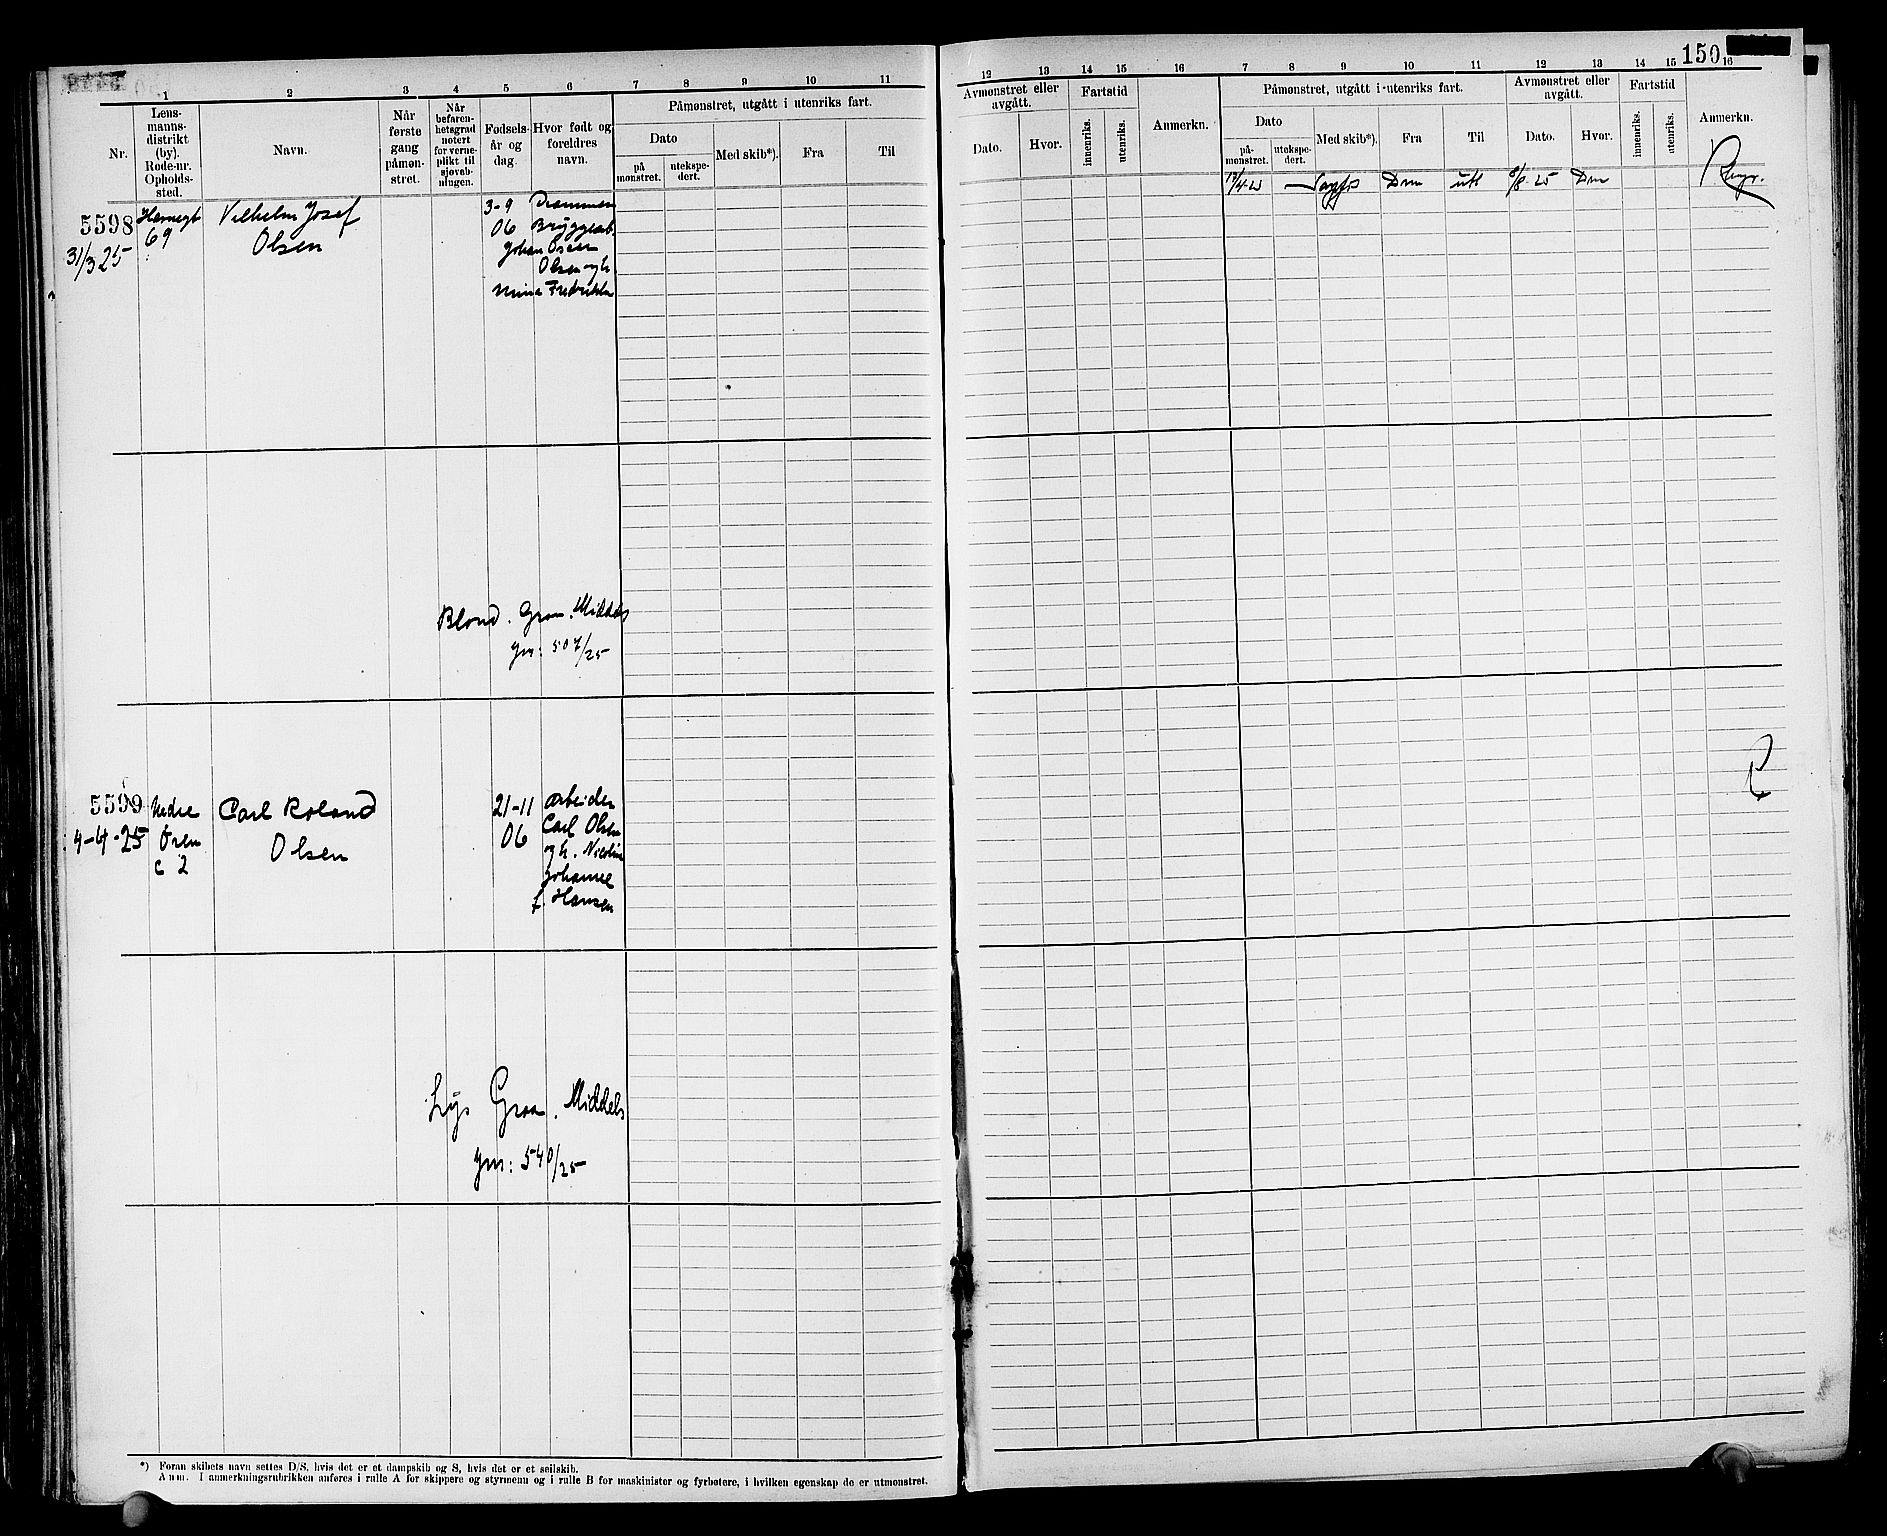 150
1 2 3 4 5 6 7 8 9 10 11
12 13 14 15 16 7 8 9 10 11 12 13 14 15 16
Nr.
Lens-
manns-
distrikt
(by).
Rode-nr.
Opholds-
sted.
Navn.
Når
første
gang
påmøn-
stret.
Når
befaren-
hetsgrad
notert
for verne-
plikt til
sjøveb-
ningen.
Fødsels-
år og
dag.
Hvor født og
foreldres
navn.
Påmønstret, utgått i utenriks fart.
Dato
på
mønstret.
utekspe-
dert.
Med skib*).
Fra
Til
Avmønstret eller
avgått.
Dato.
Hvor.
Fartstid
innenriks.
utenriks.
Anmerkn.
Påmønstret, utgått i utenriks fart.
Dato
på-
mønstret.
utekspe-
dert.
Med skib*).
Fra
Til
Avmønstret eller
avgått.
Dato.
Hvor.
Fartstid
innenriks.
utenriks.
Anmerkn.
Drm utt 8/8-25 Drm
5598
31/3 25
69
Vilhelm Josef
Olsen
3-9
06
Drammen
Johan
Olsen og h.
Fredrikke
Blond. Graa. Middels
507/25
5599
4-4-25
Nedre
Øren
C 2
Carl Roland
Olsen
21-11
06
Arbeider
Carl Olsen
og h. Nicoline
Johanne
f. Hansen
R
Lys Graa. Middels
540/25
*) Foran skibets navn settes D/S, hvis det er et dampskib og S, hvis det er et seilskib.
Anm. I anmerkningsrubrikken anføres i rulle A for skippere og styrmenn og i rulle B for maskinister og fyrbøtere, i hvilken egenskap de er utmønstret.